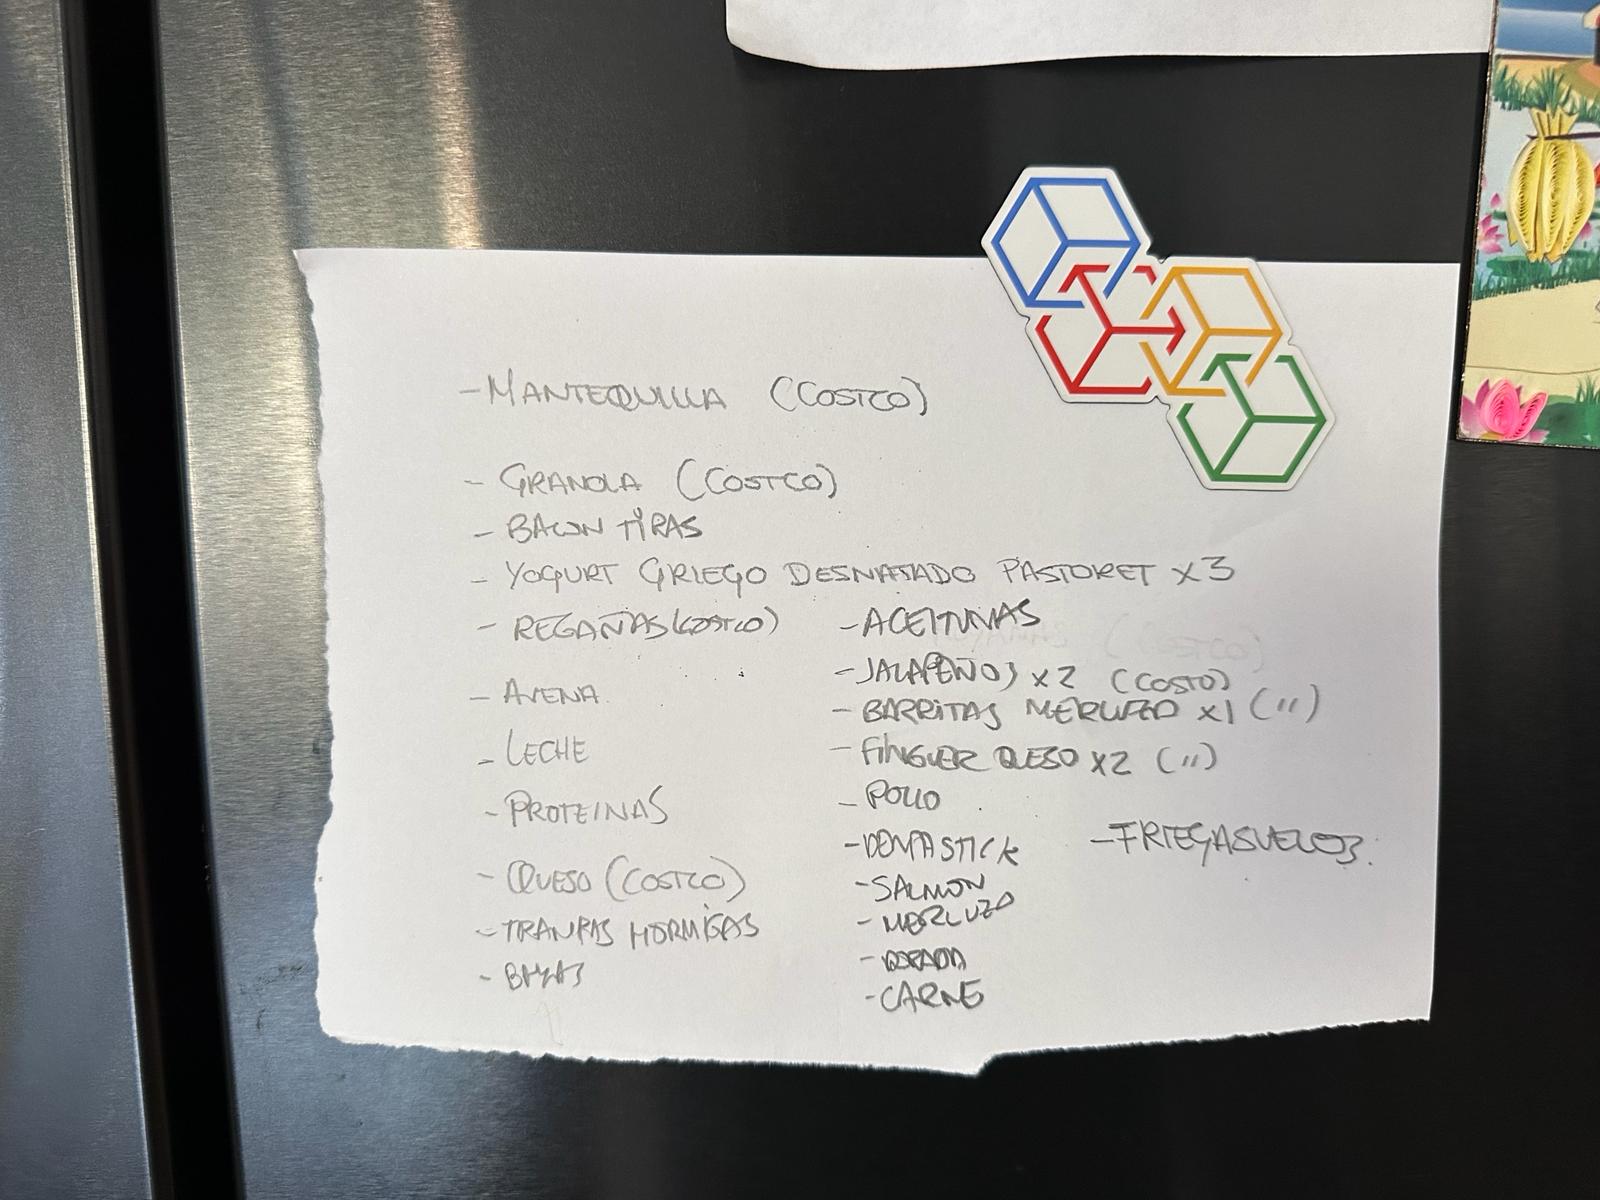 - MANTEQUILLA (COSTCO)
- GRANOLA (COSTCO)
- BACON TIRAS
- YOGURT GRIEGO DESNATADO PASTORET x3
- REGAÑAS (COSTCO)
- AVENA
- LECHE
- PROTEINAS
- QUESO (COSTCO)
- TRAMPAS HORMIGAS
- BAYAS
- ACEITUNAS
- JALAPEÑOS x2 (COSTO)
- BARRITAS MERLUZA x1 (")
- FINGUER QUESO x2 (")
- POLLO
- DENTASTICK
- SALMON
- MERLUZA
- DORADA
- CARNE
- FRIEGASUELOS.